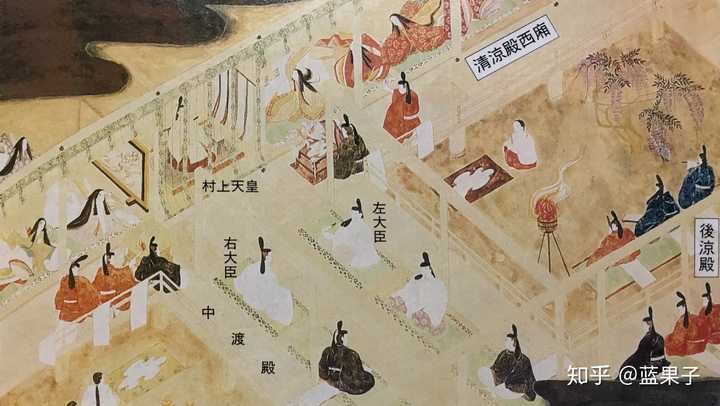 清涼殿西廂
村上天皇
左大臣
右大臣
後涼殿
中渡殿
知乎 @蓝果子